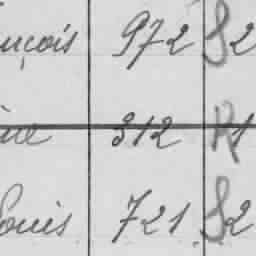 nçois 972 S2
ine 312 R1
Louis 721 S2